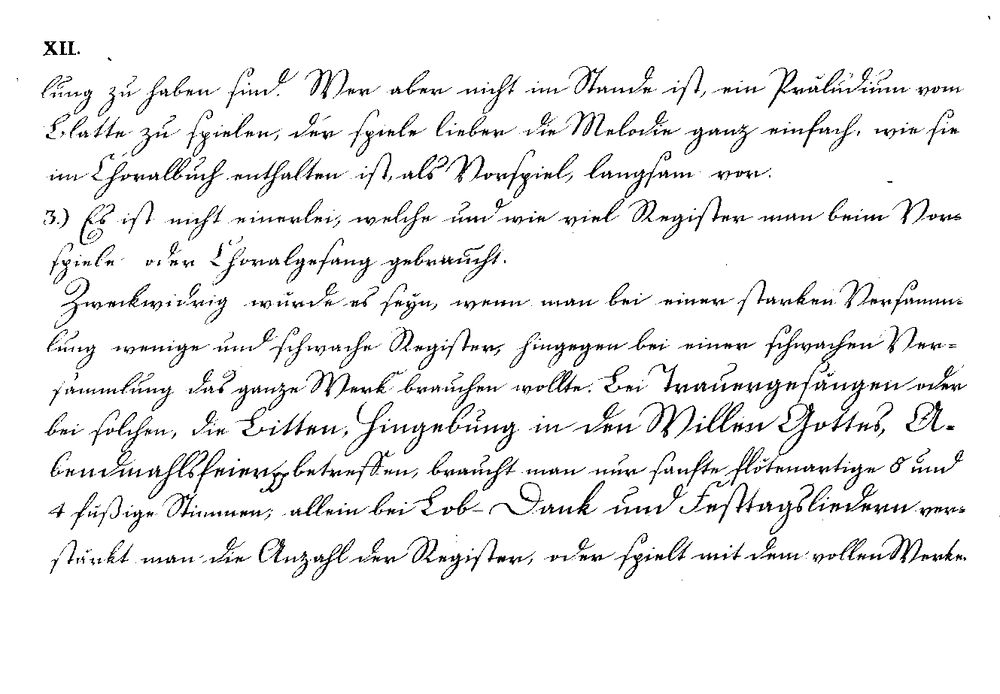 XII.
lung zu haben sind. Wer aber nicht im Stande ist, ein Präludium vom
Blatte zu spielen, der spiele lieber die Melodie ganz einfach, wie sie
im Choralbuch enthalten ist, als Vorspiel, langsam vor.
3.) Es ist nicht einerlei, welche und wie viel Register man beim Vor-
spiele oder Choralgesang gebraucht.
Zweckwidrig würde es seyn, wenn man bei einer starken Versamm-
lung wenige und schwache Register, hingegen bei einer schwachen Ver-
sammlung das ganze Werk brauchen wollte. Bei Trauergesängen oder
bei solchen, die Bitten, Hingebung in den Willen Gottes, A-
bendmahlsfeier betreffen, braucht man nur sanfte flötenartige 8 und
4 füßige Stimmen, allein bei Lob- Dank und Festtagsliedern ver-
stärkt man die Anzahl der Register, oder spielt mit dem vollen Werke.